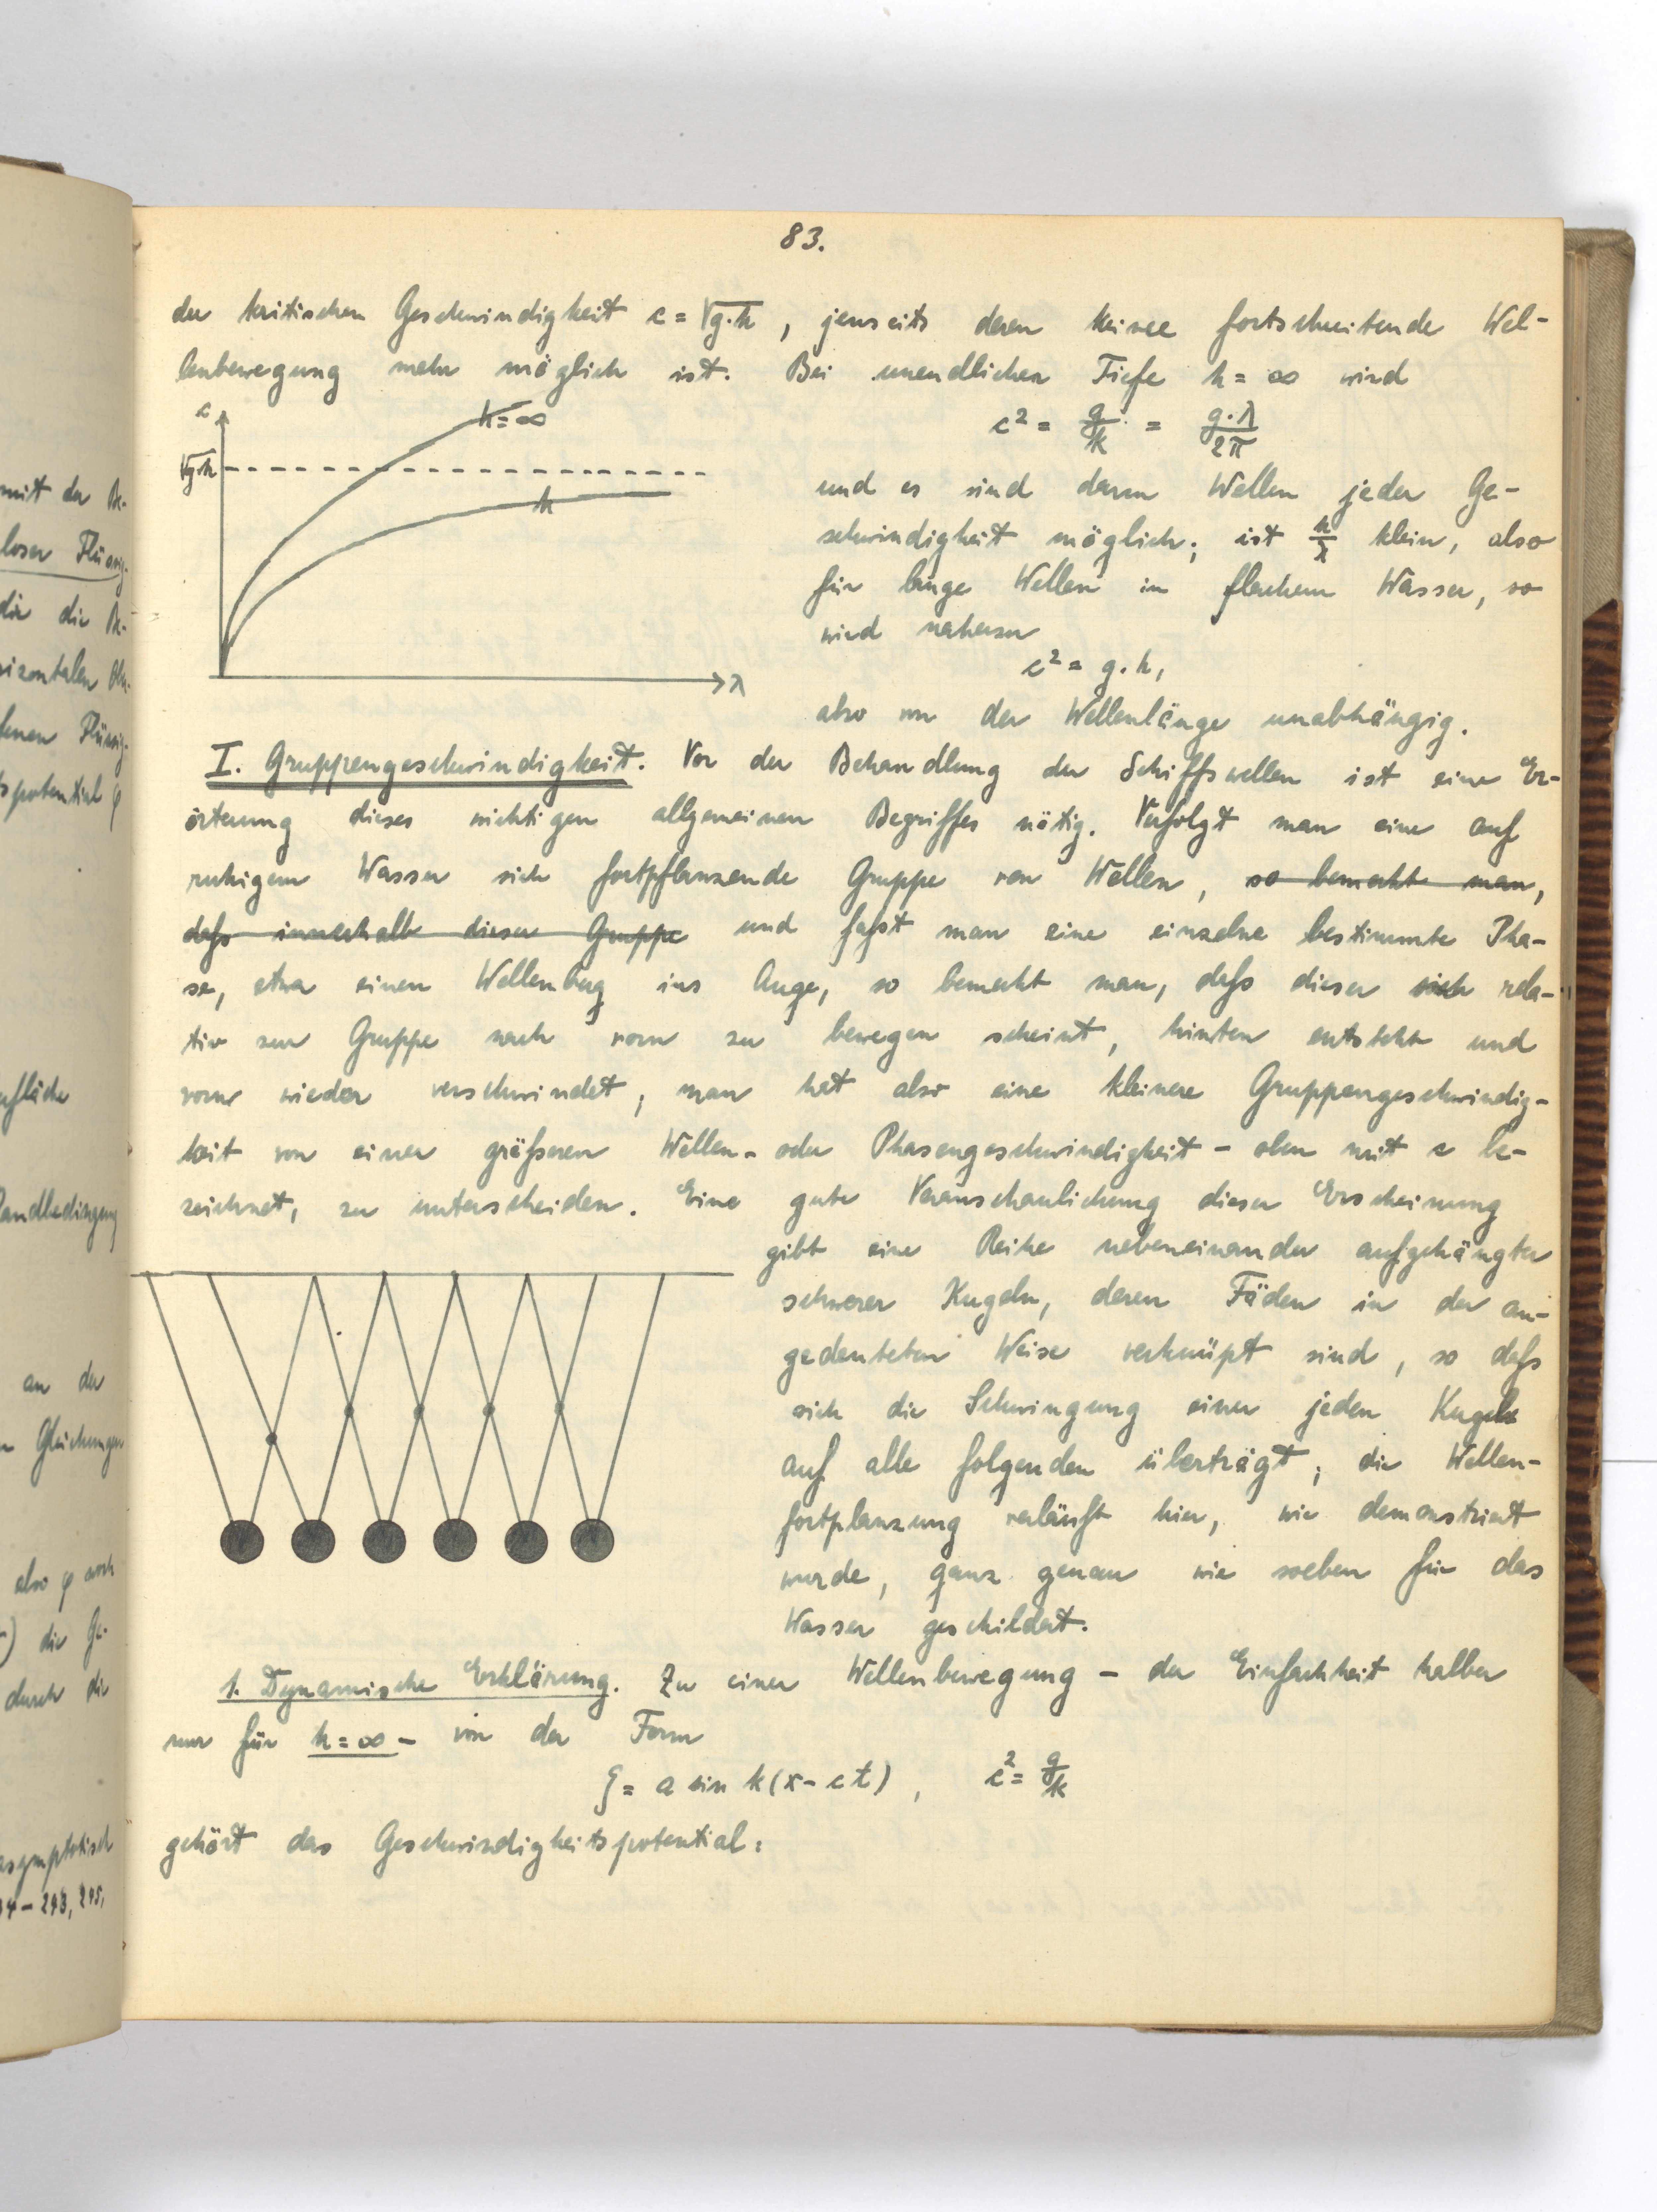 83.
der kritischen Geschwindigkeit c = √g·h, jenseits deren keine fortschreitende Wel-
lenbewegung mehr möglich ist. Bei unendlicher Tiefe h = ∞ wird
c
h = ∞
√g·h
h
λ
c² = g/k = g·λ/2π
und es sind dann Wellen jeder Ge-
schwindigkeit möglich; ist h/λ klein, also
für lange Wellen in flachem Wasser, so
wird
c² = g·h,
also von der Wellenlänge unabhängig.
I. Gruppengeschwindigkeit. Vor der Behandlung der Schiffswellen ist eine Er-
örterung dieses wichtigen allgemeinen Begriffes nötig. Verfolgt man eine auf
ruhigem Wasser sich fortpflanzende Gruppe von Wellen, so bemerkt man,
daß innerhalb dieser Gruppe und faßt man eine einzelne bestimmte Pha-
se, etwa einen Wellenberg ins Auge, so bemerkt man, daß dieser sich rela-
tiv zur Gruppe nach vorn zu bewegen scheint, hinten entsteht und
vorne wieder verschwindet, man hat also eine kleinere Gruppengeschwindig-
keit von einer größeren Wellen- oder Phasengeschwindigkeit – oben mit c be-
zeichnet, zu unterscheiden. Eine gute Veranschaulichung dieser Erscheinung
gibt eine Reihe nebeneinander aufgehängter
schwerer Kugeln, deren Fäden in der an-
gedeuteten Weise verknüpft sind, so daß
sich die Schwingung einer jeden Kugel
auf alle folgenden überträgt; die Wellen-
fortplanzung verläuft hier, wie demonstriert
wurde, ganz genau wie soeben für das
Wasser geschildert.
1. Dynamische Erklärung. Zu einer Wellenbewegung – der Einfachheit halber
nur für h = ∞ – von der Form
ζ = a sin k(x – ct), c² = g/k
gehört das Geschwindigkeitspotential: